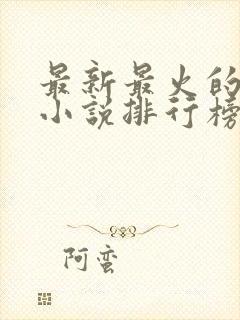 最新最火的
小说排行榜
阿蛮